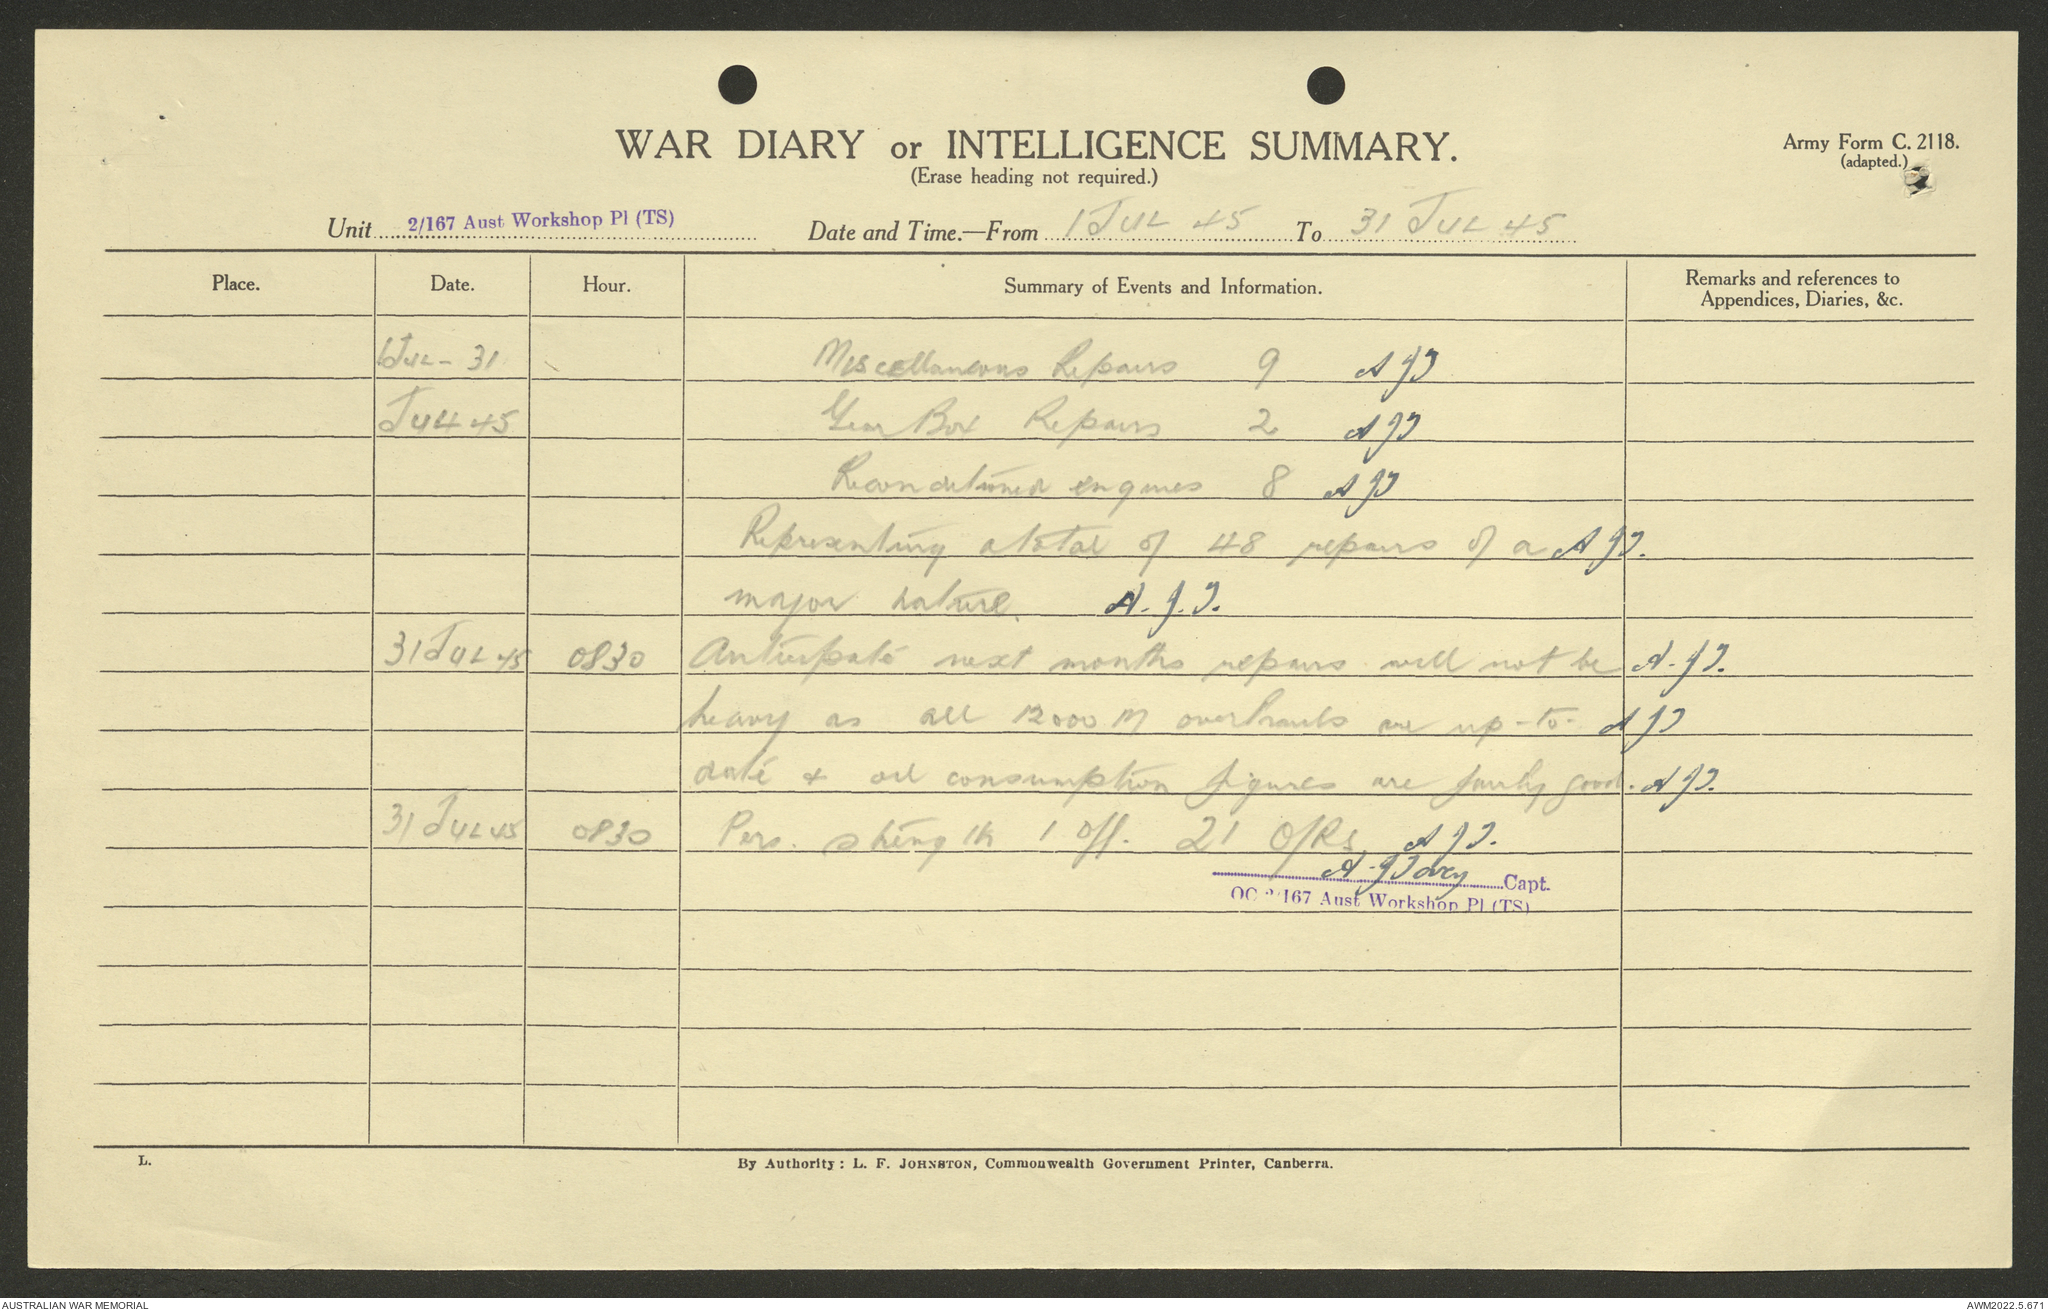 WAR DIARY or INTELLIGENCE SUMMARY.
(Erase heading not required.)
Army Form C. 2118.
(adapted.)
Unit 2/167 Aust Workshop Pl (TS) Date and Time.—From 1 JUL 45 To 31 JUL 45
Place. Date. Hour. Summary of Events and Information. Remarks and references to
Appendices, Diaries, &c.
1 JUL - 31 Miscellaneous Repairs 9 AJT
JUL 45 Gear Box Repairs 2 AJT
Reconditioned engines 8 AJT
Representing a total of 48 repairs of a AJT.
major nature. A.J.T.
31 JUL 45 0830 Anticipate next months repairs will not be A.JT.
heavy as all 12000 M overhauls are up-to- AJT
date & oil consumption figures are fairly good. AJT.
31 JUL 45 0830 Pers. strength 1 Off. 21 O/Rs AJT.
A.JTovey Capt.
OC 2/167 Aust Workshop Pl (TS)
L. By Authority: L. F. JOHNSTON, Commonwealth Government Printer, Canberra.
AUSTRALIAN WAR MEMORIAL AWM2022.5.671